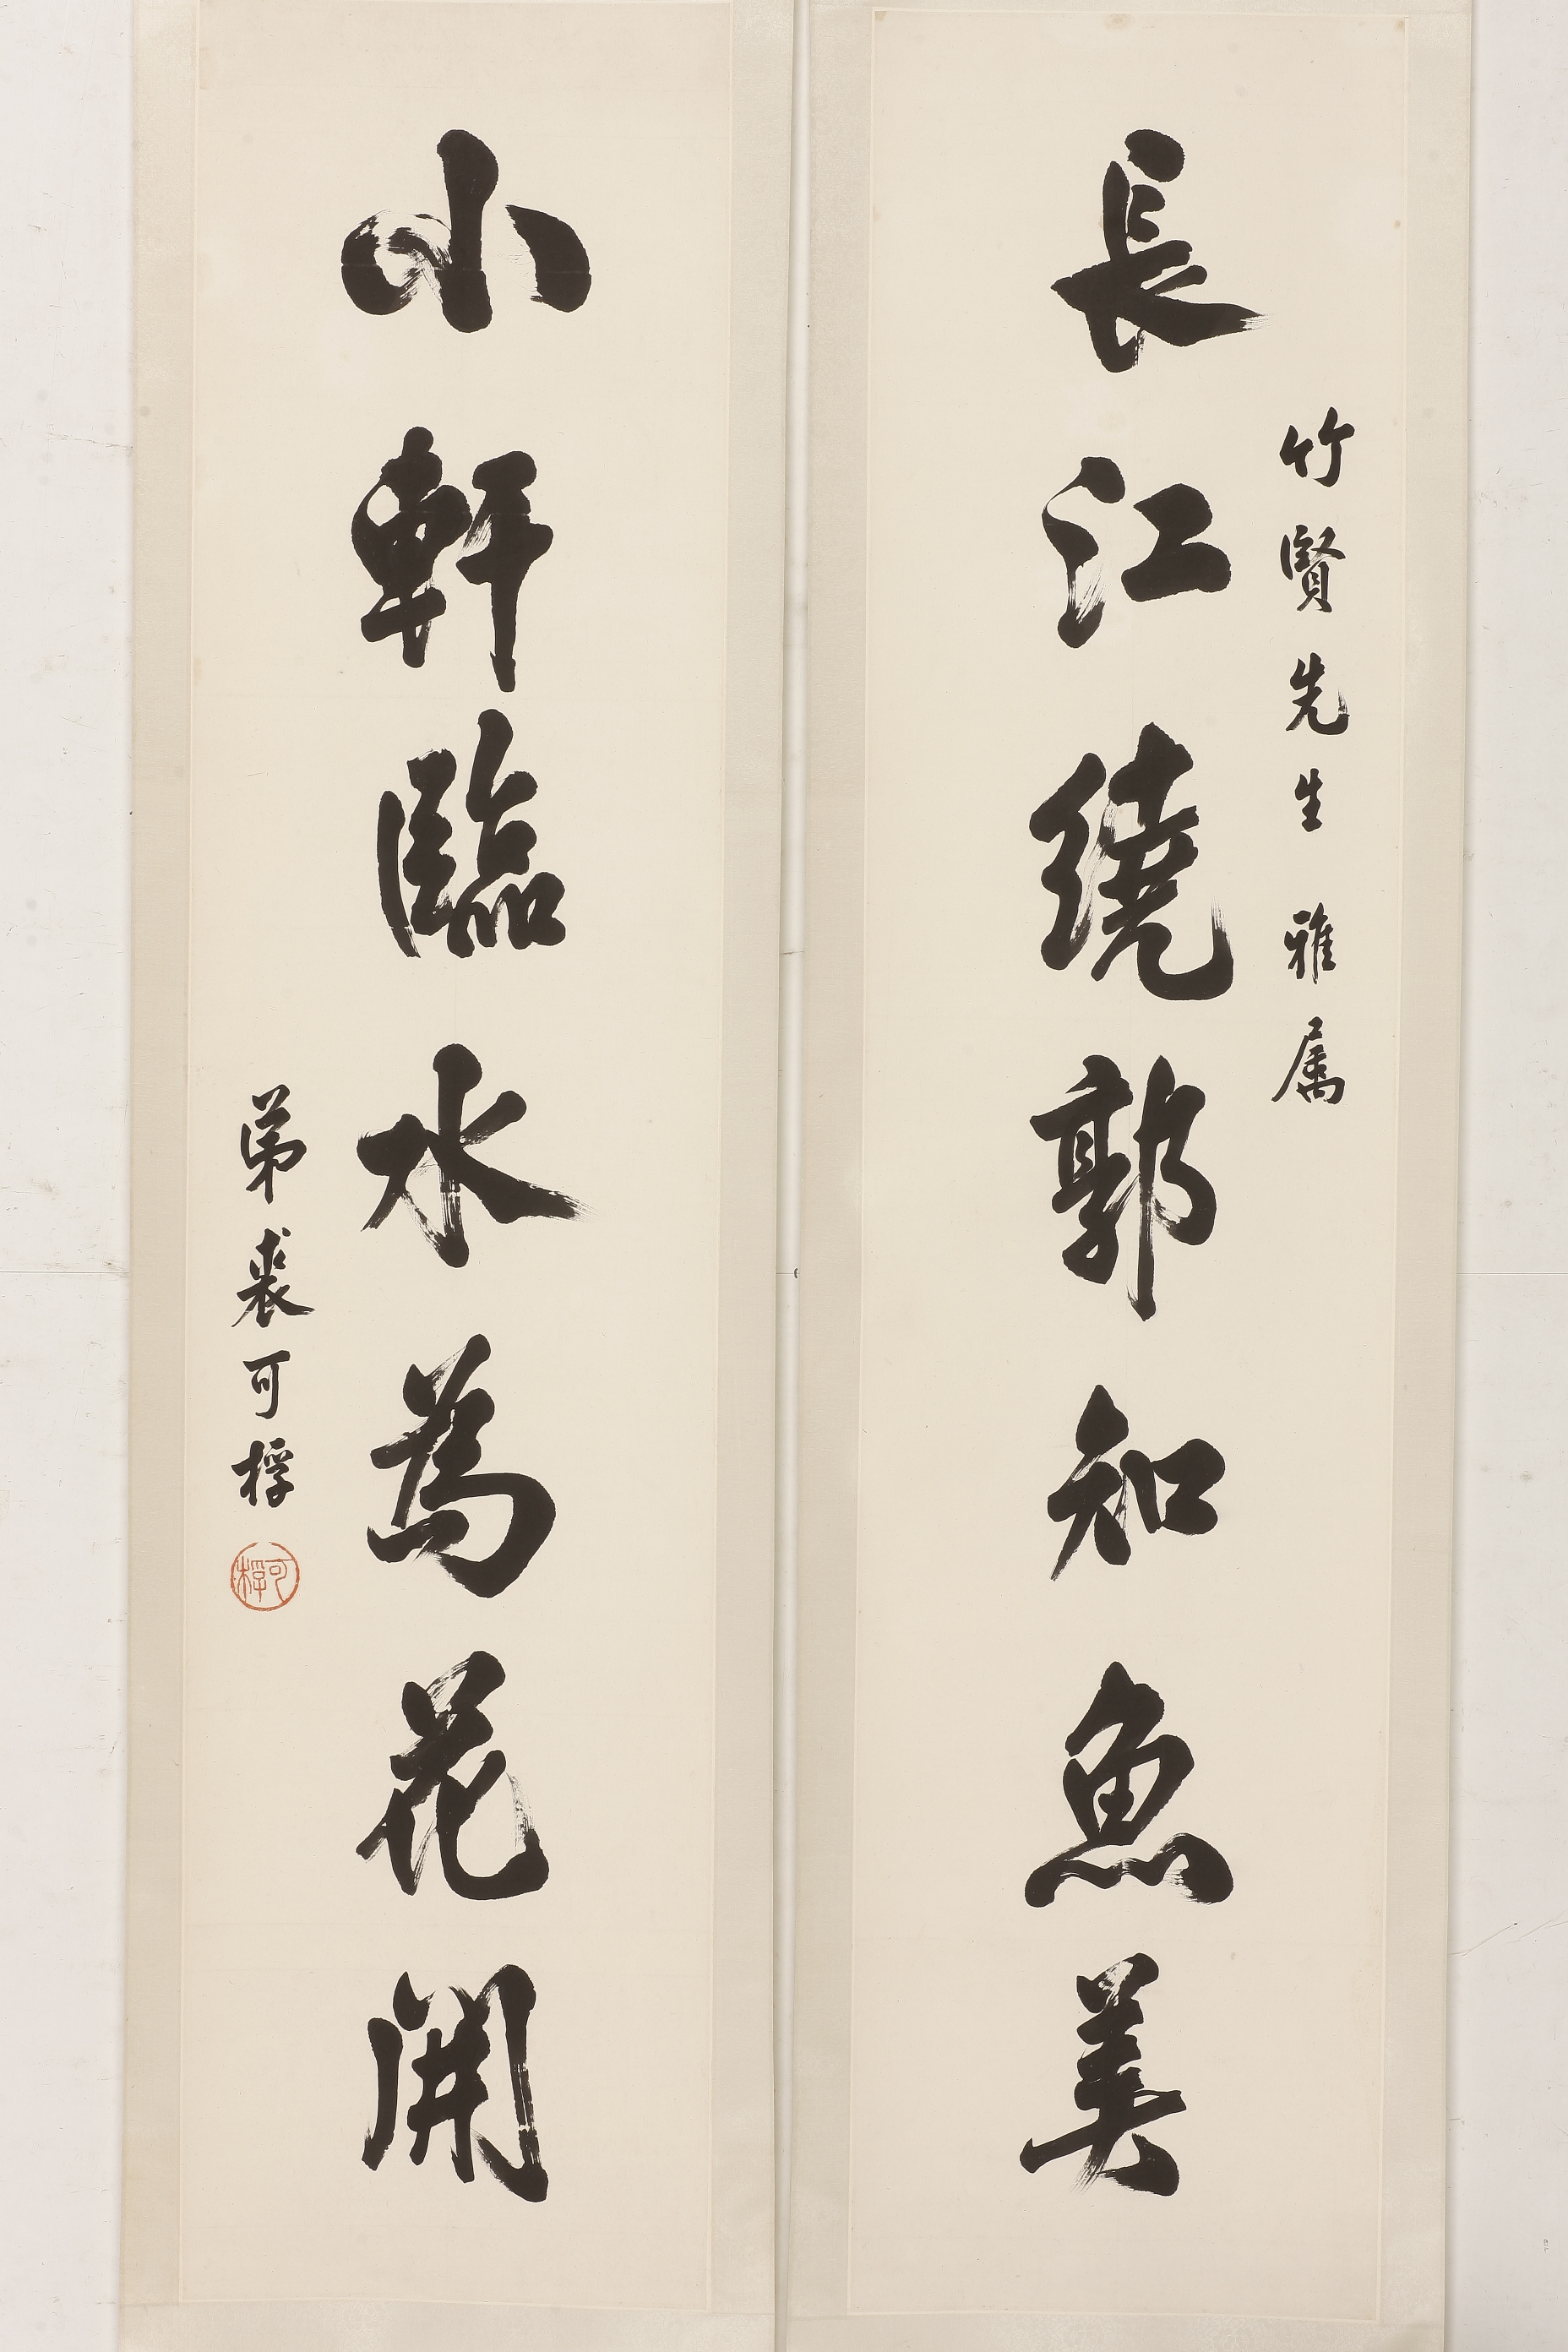 長江繞郭知魚美
竹賢先生雅属
小軒臨水為花開
弟裘可桴
可桴